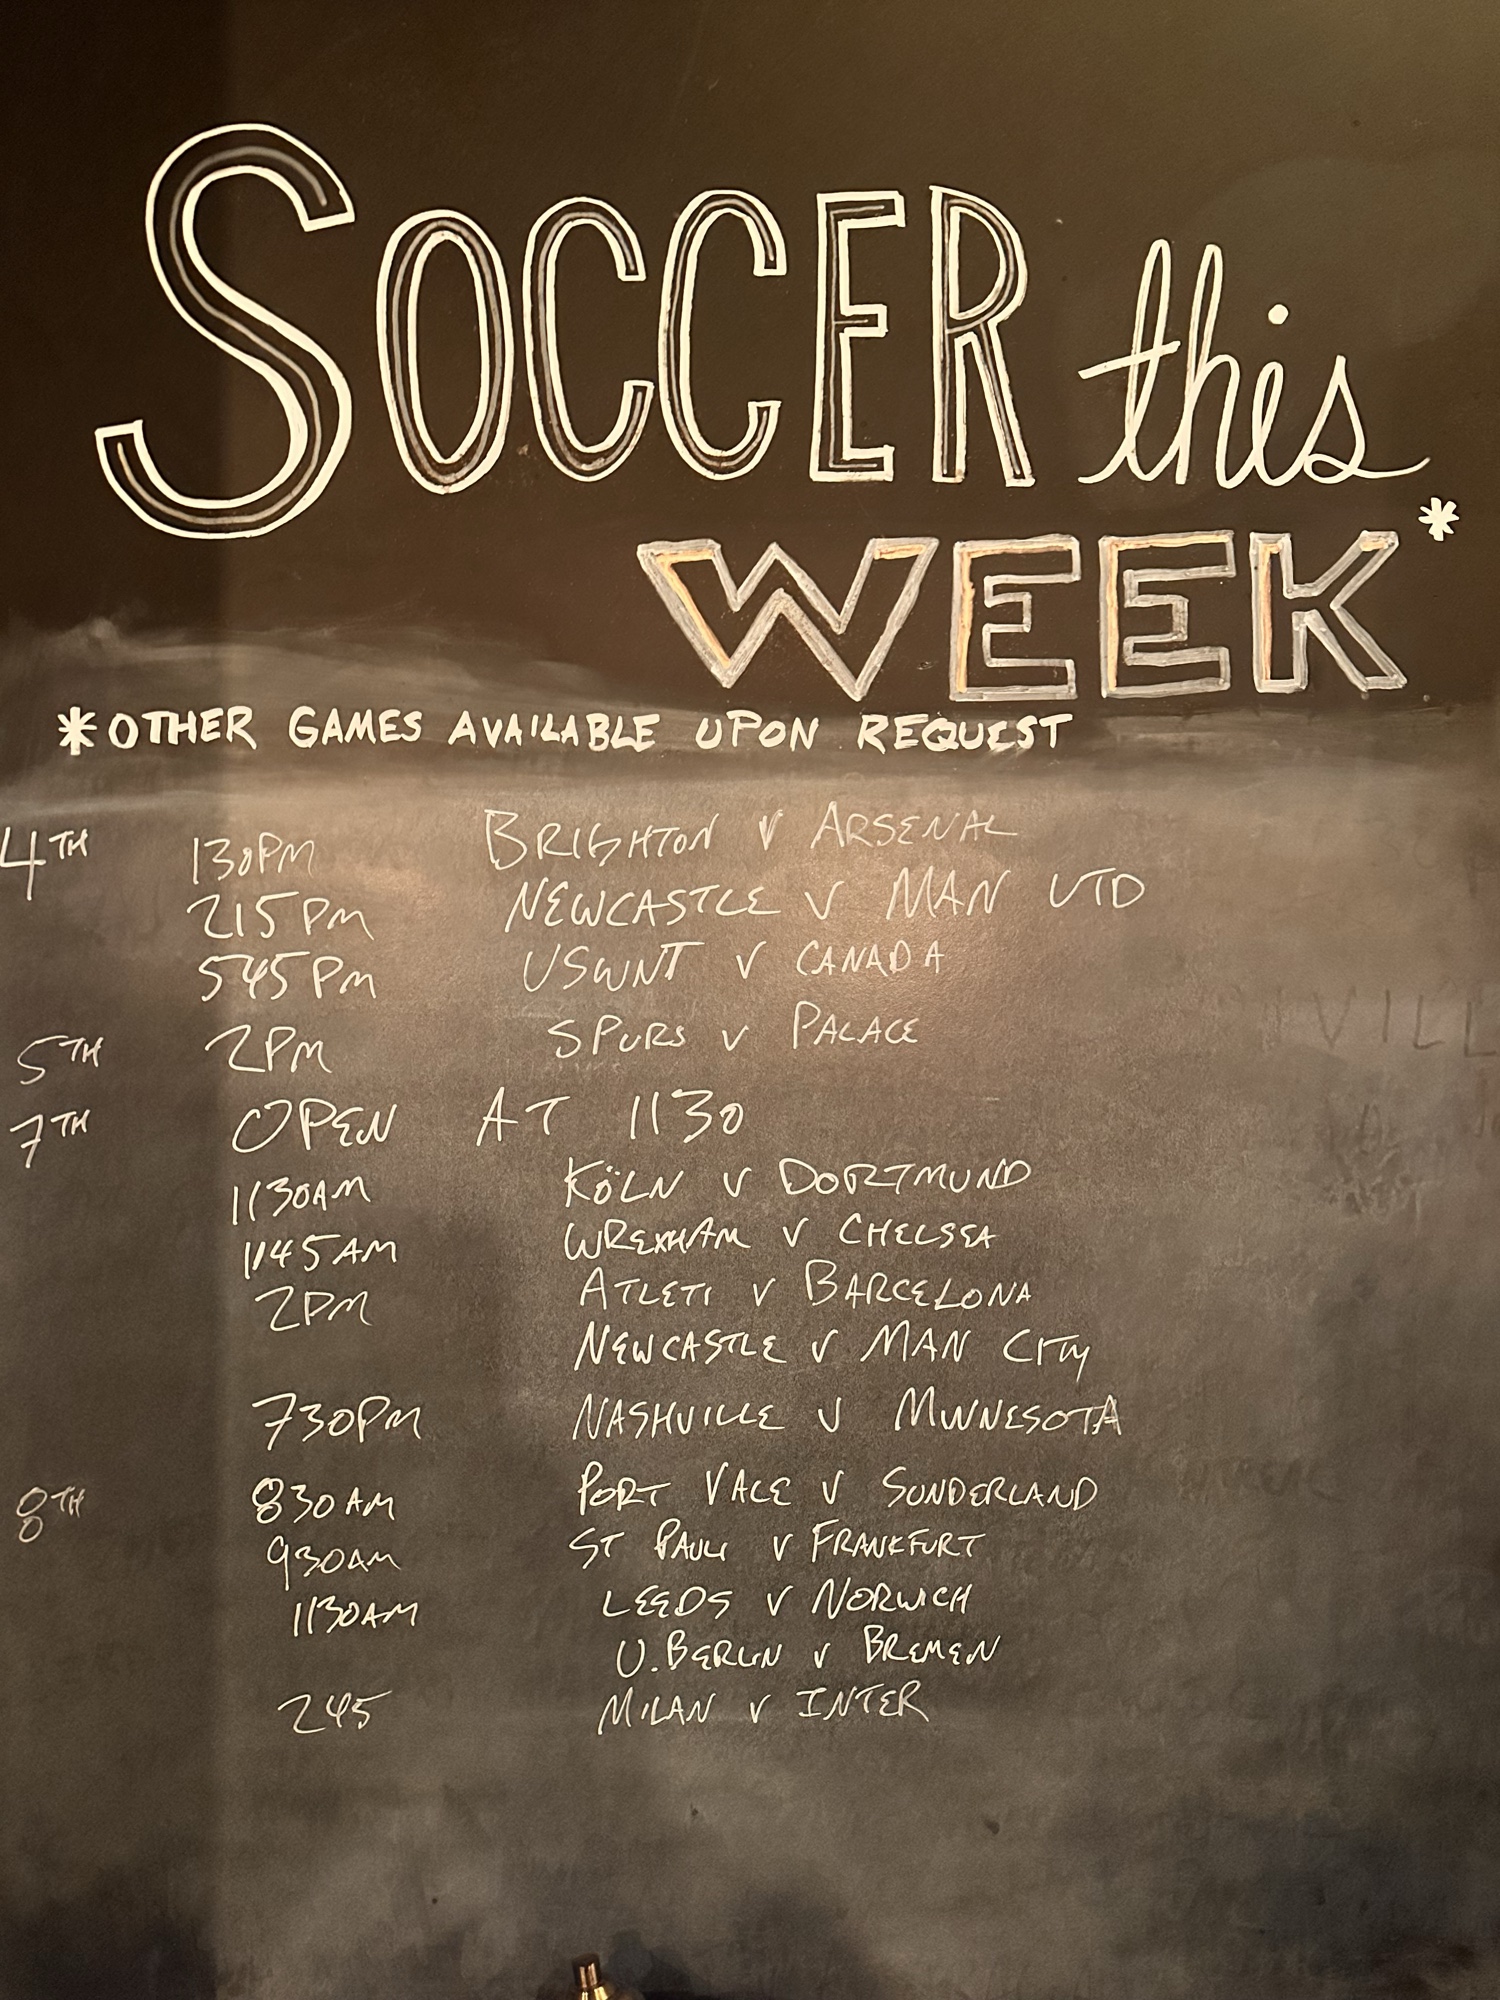 SOCCER this
WEEK*
*OTHER GAMES AVAILABLE UPON REQUEST
4TH 130PM BRIGHTON V ARSENAL
215PM NEWCASTLE V MAN UTD
545PM USWNT V CANADA
5TH 2PM SPURS V PALACE
7TH OPEN AT 1130
1130AM KÖLN V DORTMUND
1145AM WREXHAM V CHELSEA
2PM ATLETI V BARCELONA
NEWCASTLE V MAN CITY
730PM NASHVILLE V MINNESOTA
8TH 830AM PORT VALE V SUNDERLAND
930AM ST PAULI V FRANKFURT
1130AM LEEDS V NORWICH
U.BERLIN V BREMEN
245 MILAN V INTER